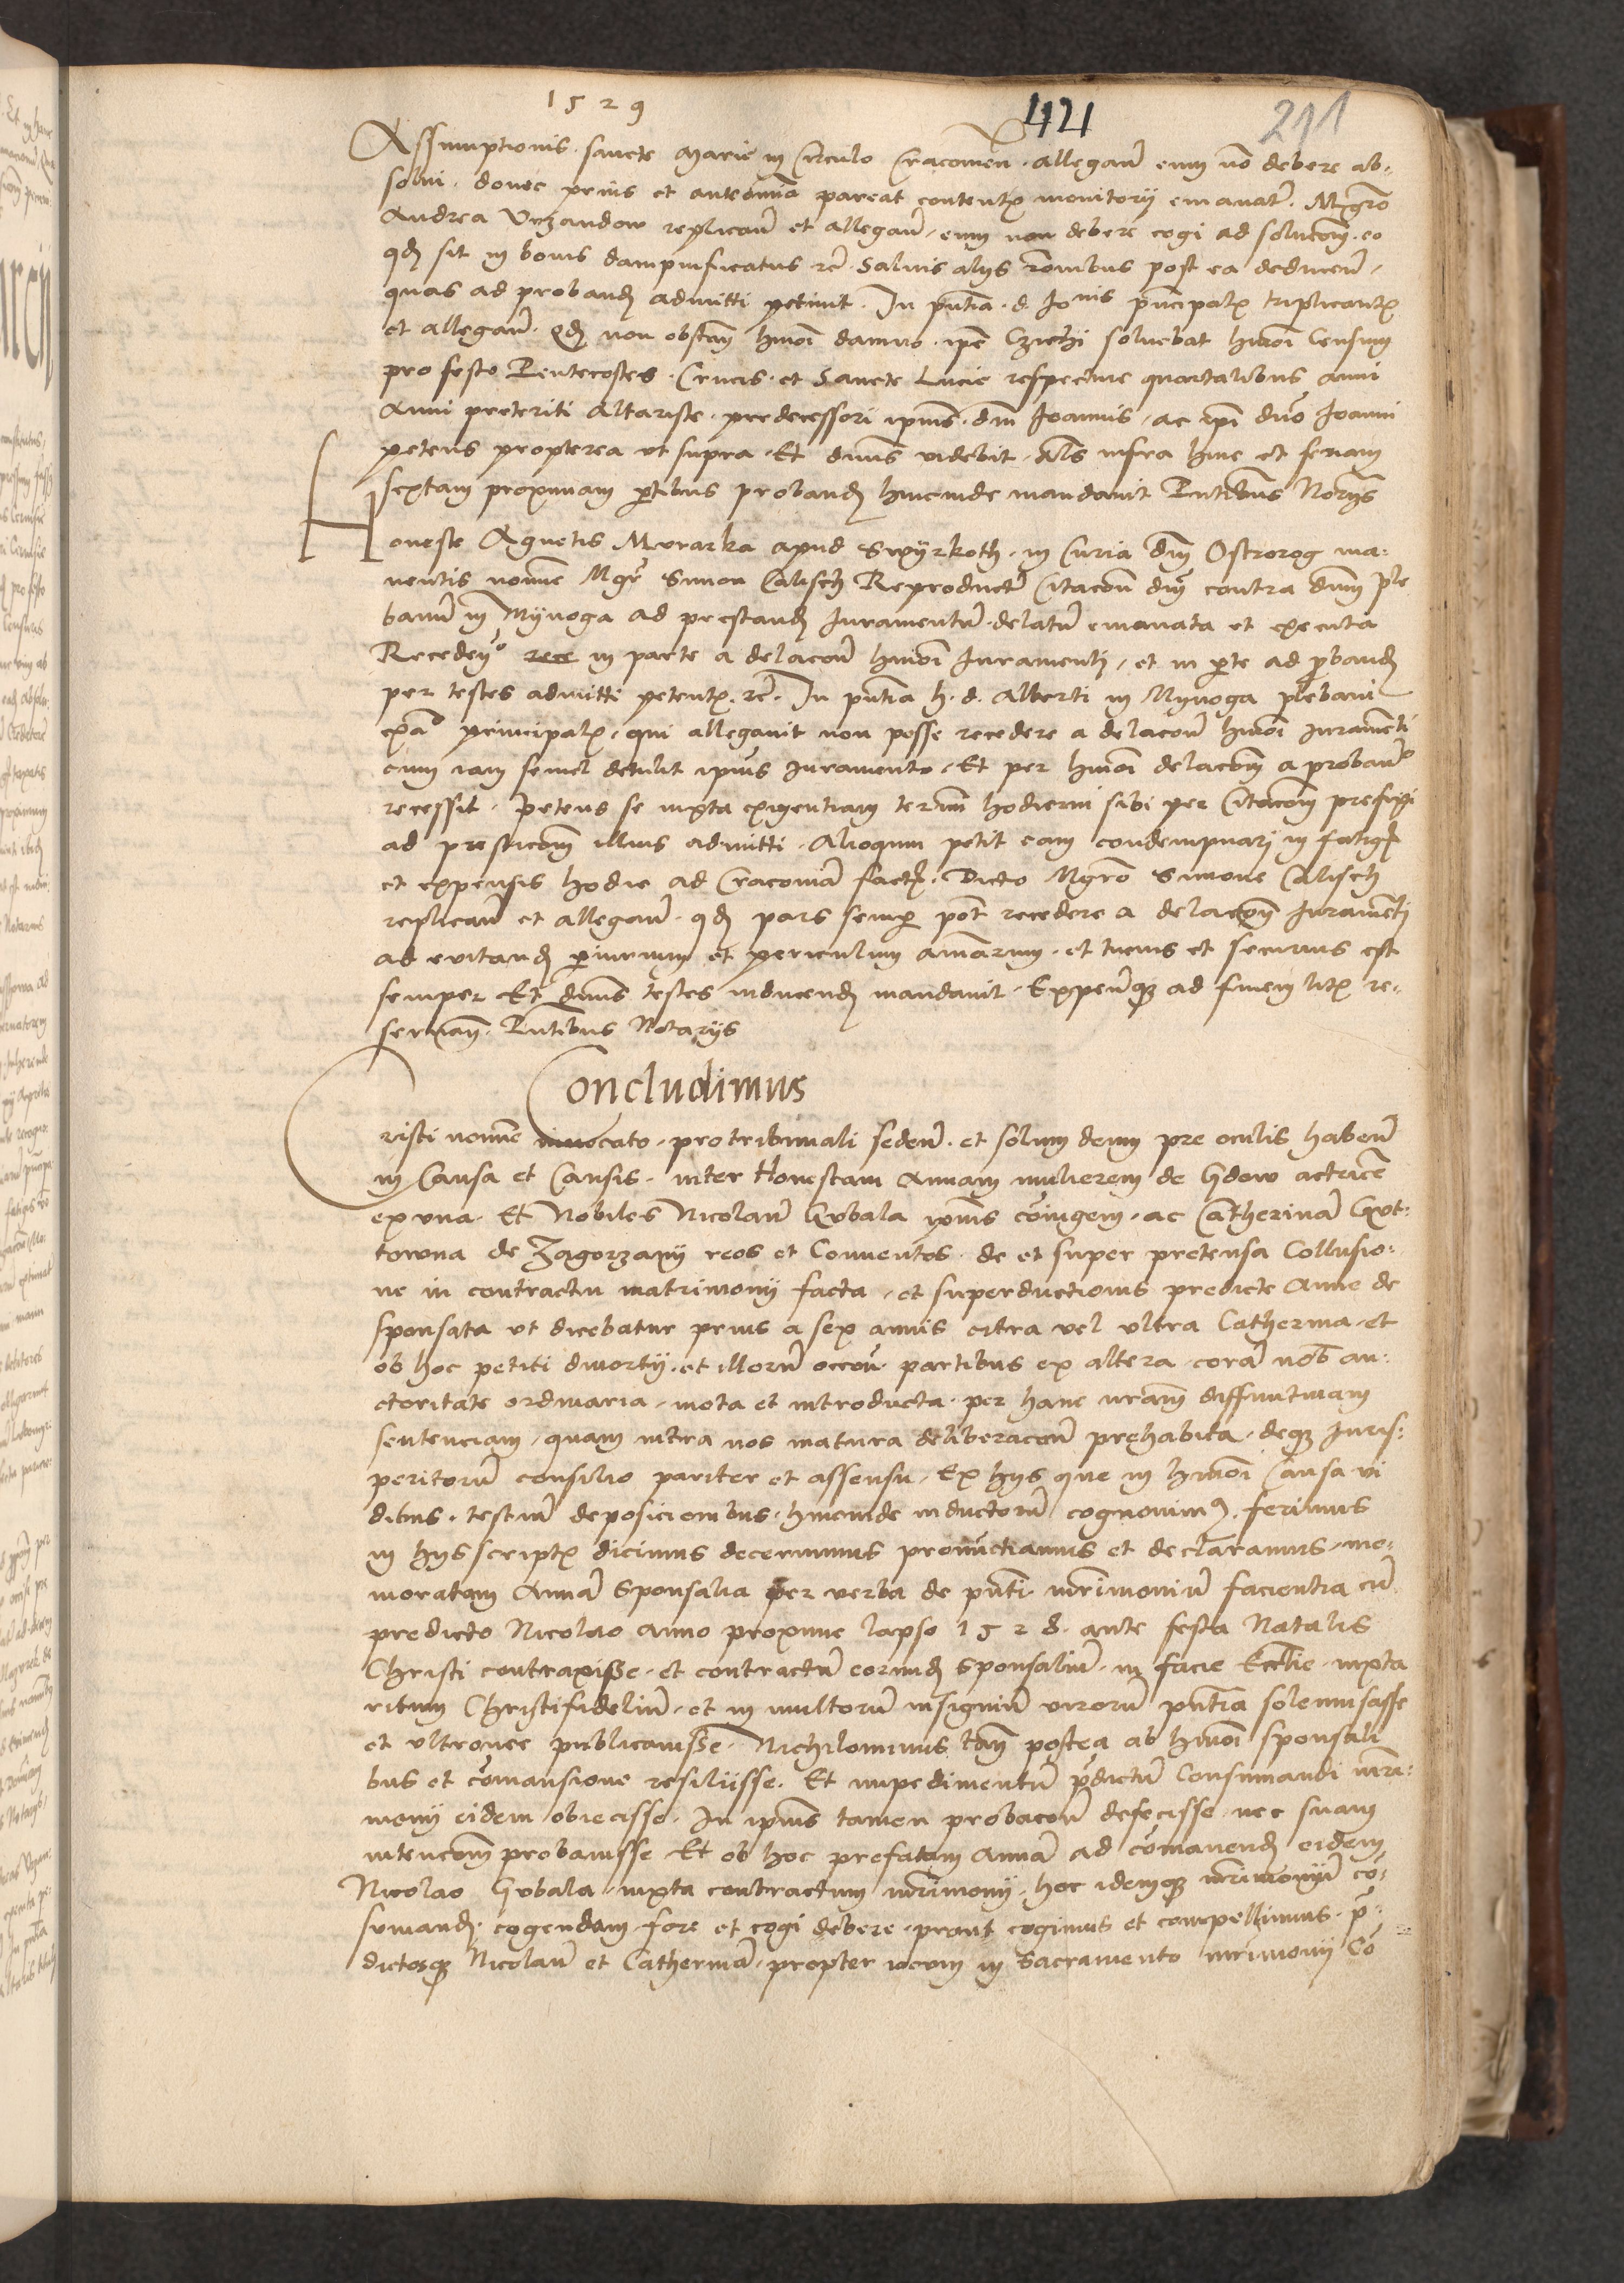 1529
421
211
Assumptionis sancte Marie in Circulo Cracovien̄ . allegan̄ eum nō debere ab-
solvi . donec prius et anteomnia pareat contentꝭ monitorij emanatꝭ . Mgrō
Andrea Vrzandow replican̄ et allegan̄ . eum non debere cogi ad solucōm . eo
qd̄ sit in bonis dampnificatus rc̄ . Salvis alijs rōnibus post ea deducen̄ .
quas ad proband̄ admitti petivit . In pn̄tia . d. Jo nis principalꝭ triplicantꝭ
et allegan̄ . Qd̄ non obstan̄ hmōi damno . ipē Czichi solvebat hmōi Censum
pro festo Pentecostes . Crucis . et Sancte Lucie respective quartalibus anni
Anni preteriti Altariste . predecessori ipius . dni Joannis . ac ipi dnō Joanni
petens propterea ut supra . Et dnus videbit . Als infra hinc et feriam
sextam proximam ptibus proband̄ hincinde mandavit Pn̄tibus Norijs
Honeste Agnetis Murarka apud Swyrkoth . in Curia dni Ostrorog ma-
nentis nomine Mgr Simon Calisch Reproductꝭ Citacōn̄ dny contra dnm ple
banū in Mynoga ad prestand̄ Juramentū . delatū emanata et executa
Recedeno rece in parte a delacōn̄ hmōi Juramenti . et in pte ad pband̄
per testes admitti petentꝭ . rc̄ . In pn̄tia h. d. Alberti in Mynoga plebani
exa principalꝭ . qui allegavit non posse recedere a delacōn̄ hmōi Juramenti
cum iam semel detulit ipius Juramento . Et per hmōi delacōm a probanꝭ
recessit . Petens se iuxta exigentiam termi hodierni sibi per Citacōm prefixi
ad prestacōm illius admitti . Alioquin petit eam condempnari in fatigꝭ
et expensis hodie ad Cracoviā factꝭ . Dicto Mgrō Simone Calisch
replican̄ et allegan̄ . qd̄ pars semp pōt recedere a delacōn̄ Juramenti
ad evitand̄ piurium et periculum aīarum . et tucius et securius est
semper Et dnus testes inducend̄ mandavit . Expen̄qꝫ ad finem litꝭ re-
servan̄ . Pn̄tibus Notarijs
Concludimus
Cristi nomine invocato . pro tribunali seden̄ . et solum deum pre oculis haben̄
in Causa et Causis . inter Honestam Annam mulierem de Gdow actricē
ex una . Et Nobiles Nicolaū Gubala ipius cōiugem . ac Catherinā Got-
towna de Zagorzany reos et Conventos . de et super pretensa Collusio-
ne in contractu matrimonij facta . et superductionis predicte Anne de
sponsata ut dicebatur prius a sex annis citra vel ultra Catherina . et
ob hoc petiti divortij . et illorū occōn . partibus ex altera . corā nob au-
ctoritate ordinaria . mota et introducta . per hanc nram diffinitivam
sentenciam . quam intra nos matura deliberacōn̄ prehabita . deqꝫ Juris-
peritorū consilio pariter et assensu . Ex hijs que in hmōi Causa vi
dimus . testium deposicionibus . hincinde inductorū cognovimꝰ . ferimus
in hijs scriptꝭ dicimus decernimus pronūctiamus et declaramus . me-
moratam Annā Sponsalia per verba de pn̄ti mrimoniū facientia cū
predicto Nicolao anno proxime lapso 1528 . ante festa Natalis
Christi contraxisse . et contractū eorund̄ Sponsaliū . in facie Ecclie . iuxta
ritum Christifideliū . et in multorū insigniū virorū pn̄tia solemnisasse
et ultronee publicavisse . Nichilominus tān postea ab hmōi sponsali
bus et cōmansione resiliisse . Et impedimentū pdictū Consumandi mri-
monij eidem obiecisse . In ipius tamen probacōn̄ defecisse . nec suam
intencōm probavisse Et ob hoc prefatam Annā ad cōmanend̄ eidem
Nicolao Gubala . iuxta contractum mrimonij . hoc idemqꝫ mrimoniū cō-
sumand̄ . cogendam fore et cogi debere . prout cogimus et compellimus . p-
dictosqꝫ Nicolaū et Catherinā . propter iocum in Sacramento mrimonij Cō